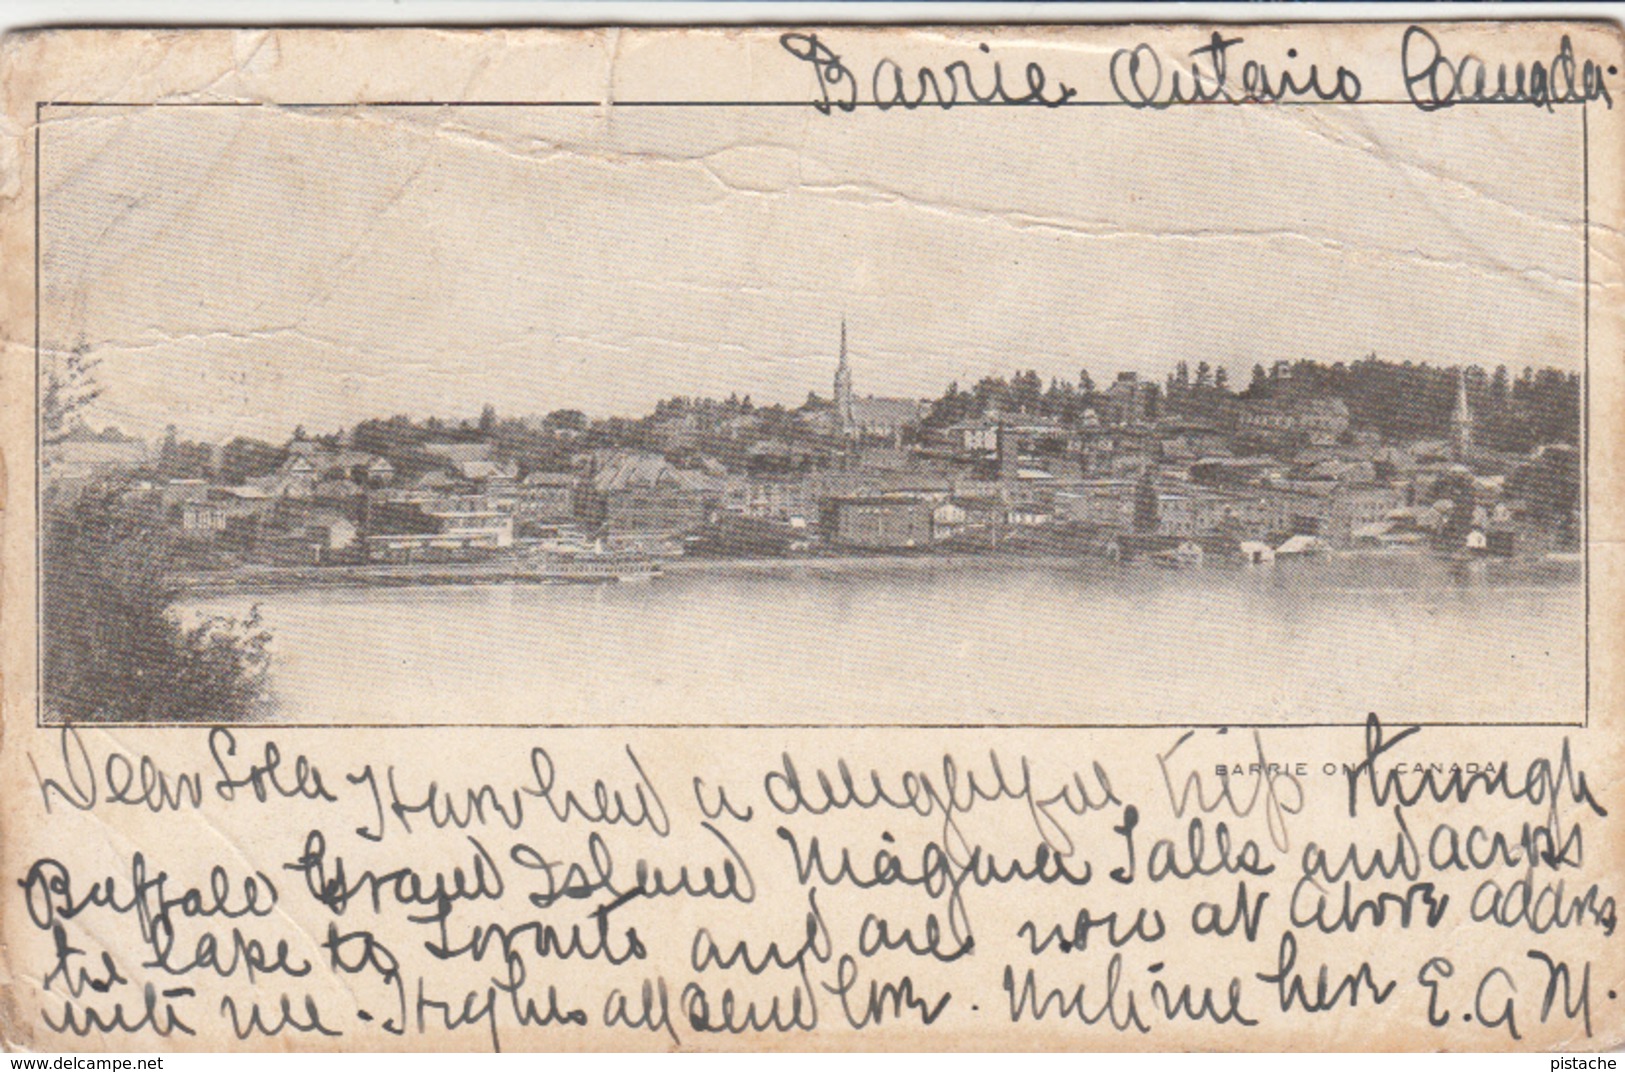 Barrie Ontario Canada.
BARRIE ONT. CANADA
Dear Lola Have had a delightful trip through
Buffalo Grand Island Niagara Falls and across
the lake to Toronto and are now at above address
with me. Hughes all send love. Write me here E.A.M.
delcampe.net
pistache